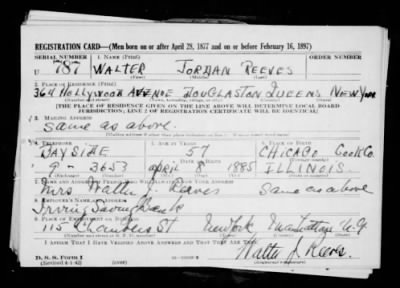 REGISTRATION CARD—(Men born on or after April 28, 1877 and on or before February 16, 1897)
SERIAL NUMBER 1. NAME (Print) ORDER NUMBER
U 787 WALTER JORDAN REEVES
(First) (Middle) (Last)
2. PLACE OF RESIDENCE (Print)
364 HOLLYWOOD AVENUE DOUGLASTON QUEENS NEW YORK
(Number and street) (Town, township, village, or city) (County) (State)
[THE PLACE OF RESIDENCE GIVEN ON THE LINE ABOVE WILL DETERMINE LOCAL BOARD
JURISDICTION; LINE 2 OF REGISTRATION CERTIFICATE WILL BE IDENTICAL]
3. MAILING ADDRESS
Same as above.
4. TELEPHONE 5. AGE IN YEARS 6. PLACE OF BIRTH
BAYSIDE 57 CHICAGO Cook Co.
DATE OF BIRTH
9-3653 April 8 1885 ILLINOIS.
7. NAME AND ADDRESS OF PERSON WHO WILL ALWAYS KNOW YOUR ADDRESS
Mrs Walter J Reeves Same as above
8. EMPLOYER'S NAME AND ADDRESS
Irving Savings Bank
9. PLACE OF EMPLOYMENT OR BUSINESS
115 Chambers St New York Manhattan N.Y.
I AFFIRM THAT I HAVE VERIFIED ABOVE ANSWERS AND THAT THEY ARE TRUE.
D. S. S. Form 1
(Revised 4-1-42) (over)
Walter J. Reeves